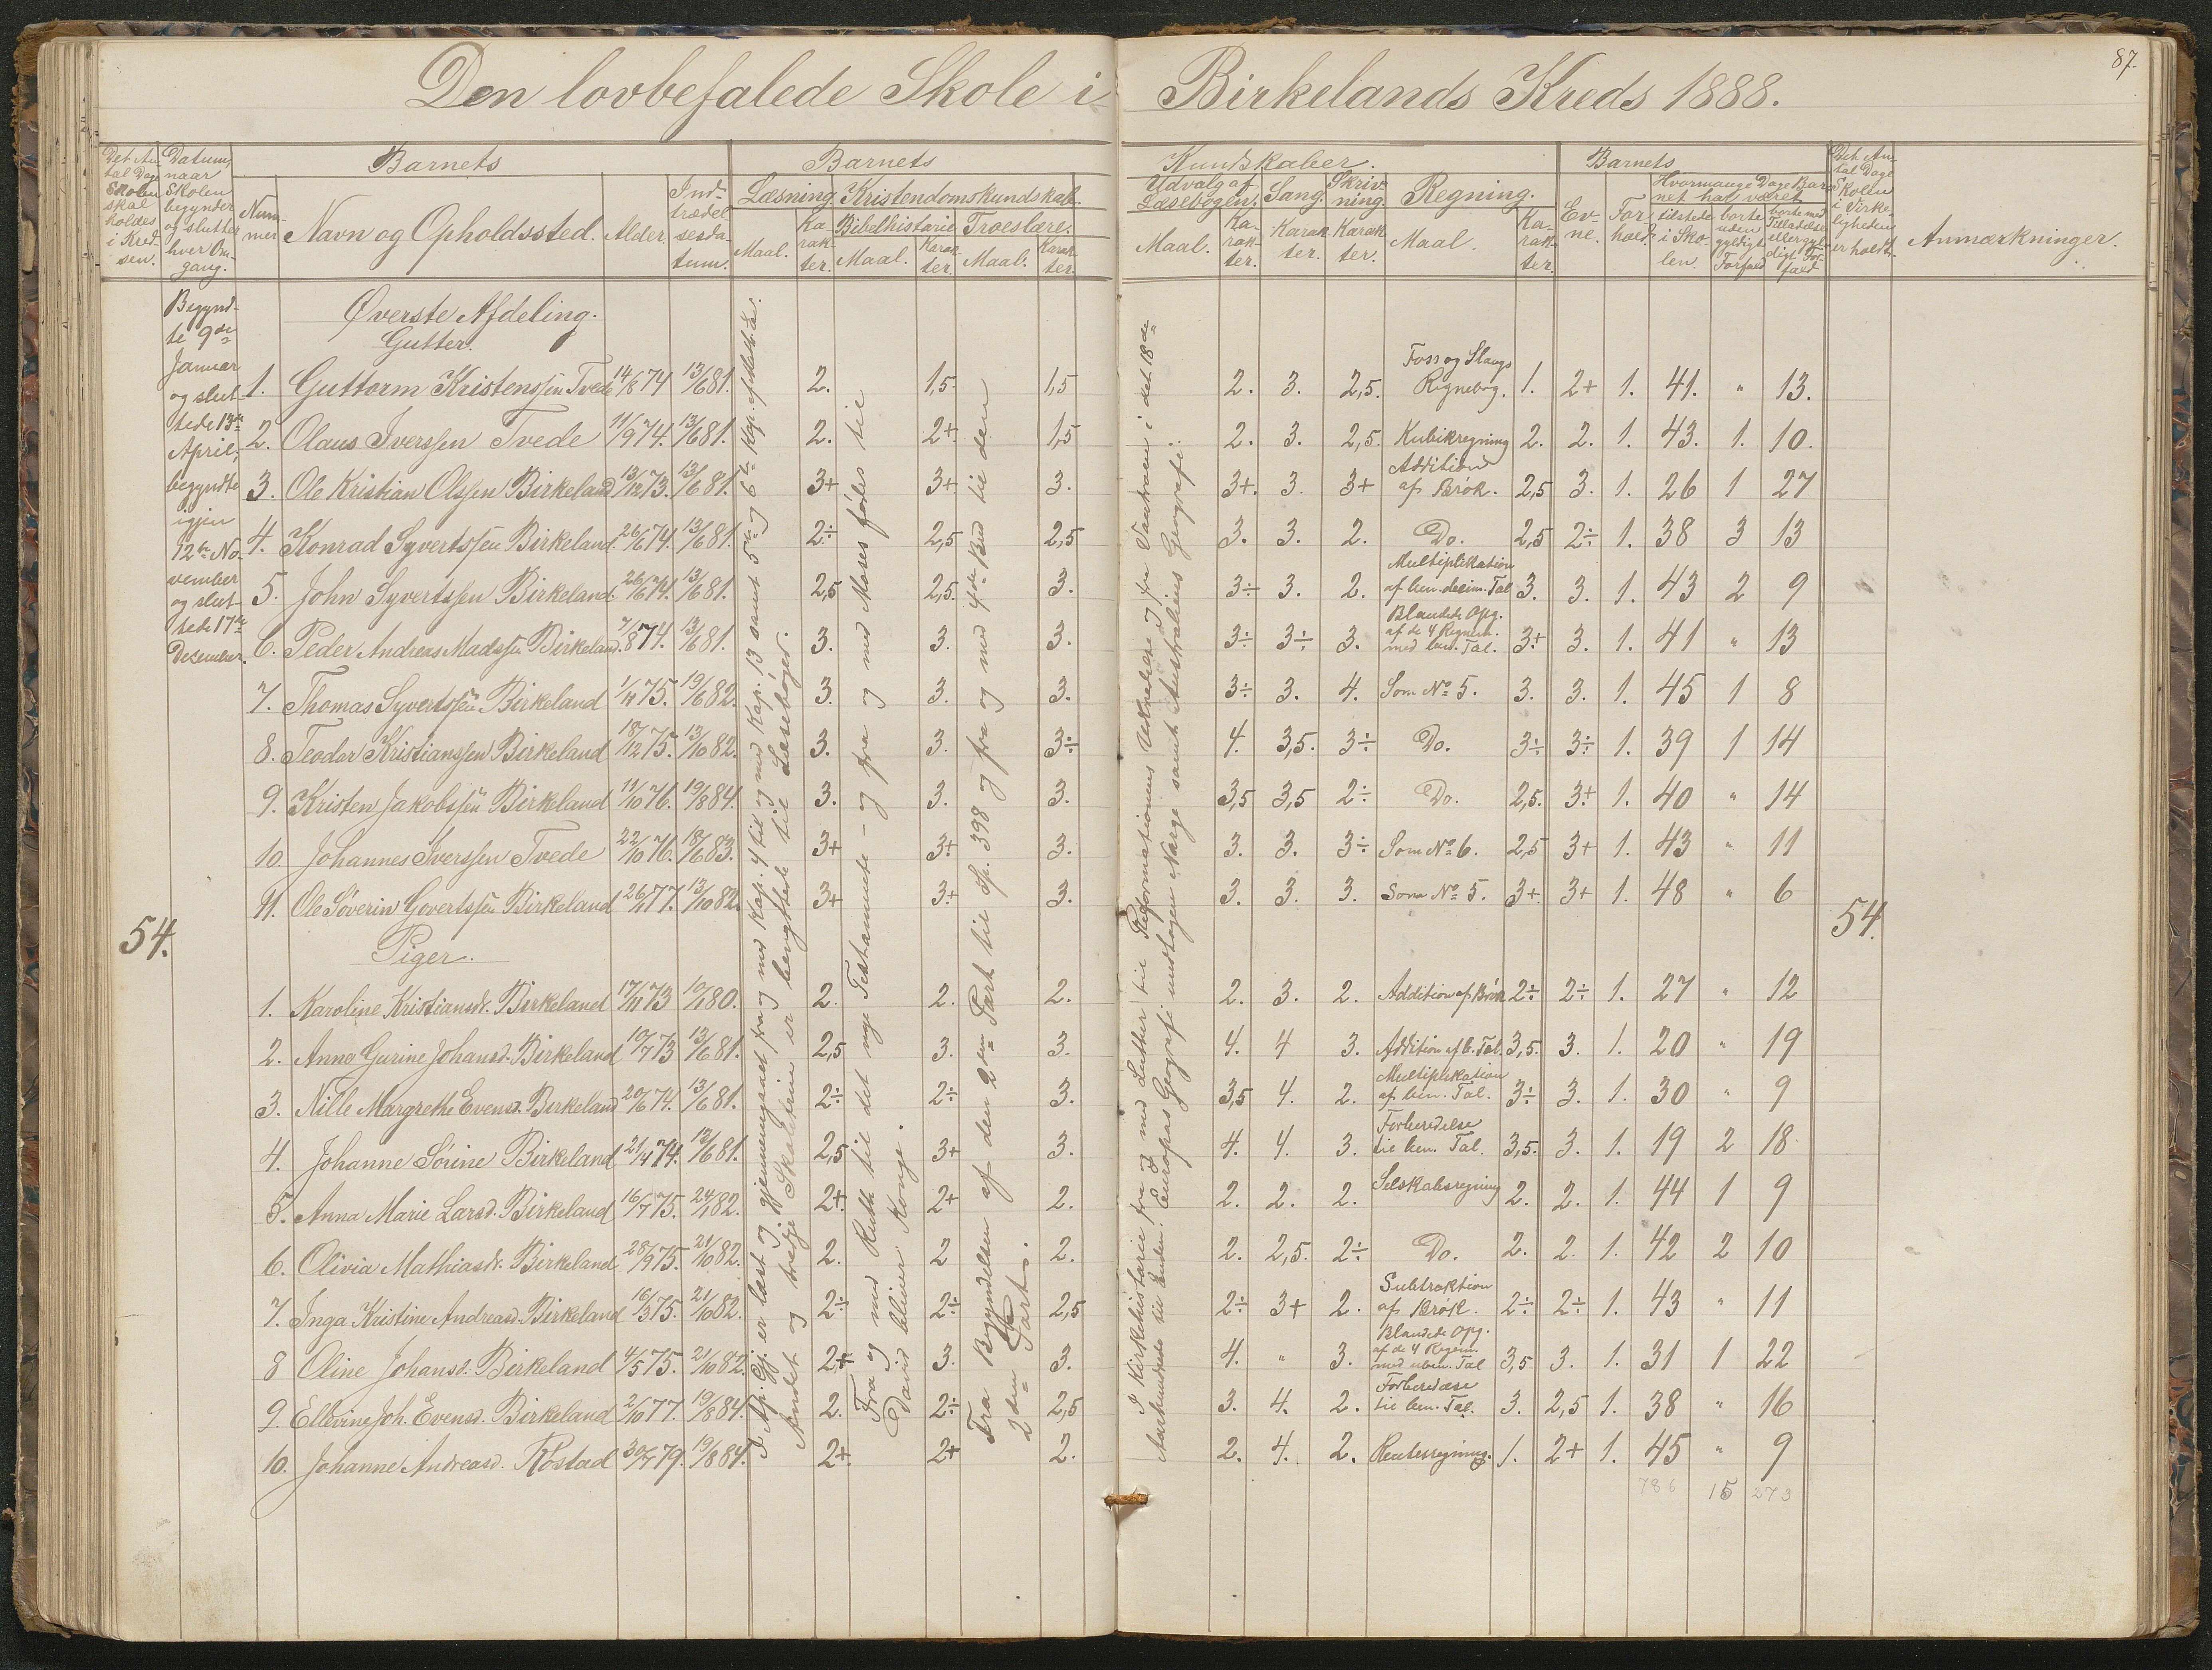 87.
Den lovbefalede Skole i Birkelands Kreds 1888.
Det An-
tal Dage
Skolen
skal
holdes
i Kred-
sen.
Datum,
naar
Skolen
begynder
og slutter
hver Om-
gang.
Barnets
Num-
mer
Navn og Opholdssted.
Alder.
Ind-
trædel-
sesda-
tum.
Barnets
Læsning.
Maal.
Ka-
rak-
ter.
Kristendomskundskab.
Bibelhistorie
Maal.
Karak-
ter.
Troeslære.
Maal.
Karak-
ter.
Kundskaber.
Udvalg af
Læsebogen.
Maal.
Ka-
rak-
ter.
Sang.
Karak-
ter.
Skriv-
ning
Karak-
ter.
Regning.
Maal.
Ka-
rak-
ter.
Barnets
Ev-
ne.
For-
hold.
Hvormange Dage Bar-
net har været
tilstede
i Sko-
len.
borte
uden
gyldigt
Forfald
borte med
Tilladelse
eller gyl-
digt For-
fald
Det An-
tal Dage
Skolen
i Virke-
ligheden
er holdt.
Anmærkninger.
Begynd-
te 9de
Januar
og slut-
tede 13de
April,
begyndte
igjen
12te No-
vember
og slut-
tede 17de
December.
54.
Øverste Afdeling.
Gutter.
1. Guttorm Kristenssen Tvede 14/8 74 13/6 81. 2. 1,5. 1,5 2. 3. 2,5. Foss og Slaugs Regnebog. 1. 2+ 1. 41. " 13.
2. Olaus Iverssen Tvede 11/9 74. 13/6 81. 2. 2+. 1,5 2. 3. 2,5. Kubikregning 2. 2. 1. 43. 1. 10.
3. Ole Kristian Olssen Birkeland 13/12 73. 13/6 81. 3+ 3+. 3. 3+. 3. 3+ Addition af Brøk. 2,5 3. 1. 26 1 27
4. Konrad Syvertssen Birkeland. 26/6 74. 13/6 81. 2÷ 2,5 2,5 3. 3. 2. Do. 2,5 2÷ 1. 38 3 13
5. John Syvertssen Birkeland. 26/6 74. 13/6 81. 2,5 2,5. 3. 3÷ 3. 2. Multiplikation af ben. decim. Tal 3. 3. 1. 43 2 9
6. Peder Andreas Madssen Birkeland. 7/8 74. 13/6 81. 3. 3. 3. 3÷ 3÷ 3. Blandede Opg. af de 4 Regnm. med ben. Tal. 3+ 3. 1. 41 " 13
7. Thomas Syvertssen Birkeland 1/4 75. 19/6 82. 3. 3. 3. 3÷ 3. 4. Som No 5. 3. 3. 1. 45 1 8
8. Teodor Kristianssen Birkeland 18/12 75. 13/10 82. 3. 3. 3÷ 4. 3,5. 3÷ Do. 3÷ 3÷ 1. 39 1 14
9. Kristen Jakobssen Birkeland 11/10 76. 19/8 84. 3. 3. 3. 3,5 3,5 2÷ Do. 2,5. 3+ 1. 40 " 14
10. Johannes Iverssen Tvede 22/10 76. 18/6 83. 3+ 3+ 3. 3. 3. 3÷ Som No 6. 2,5 3+ 1. 43 " 11
11. Ole Søverin Govertssen Birkeland 26/11 77. 13/10 82. 3+ 3+ 3. 3. 3. 3. Som No 5. 3+. 3+ 1. 48 " 6
54.
Piger.
1. Karoline Kristiansd. Birkeland 17/11 73 10/1 80. 2. 2. 2. 2. 3. 2. Addition af Brøk 2÷ 2÷ 1. 27 " 12
2. Anne Gurine Johansd. Birkeland 10/7 73 13/6 81. 2,5 3. 3. 4. 4 3. Addition af b. Tal. 3,5. 3. 1. 20 " 19
3. Nille Margrethe Evensd. Birkeland 20/6 74. 13/6 81. 2÷ 2÷ 3. 3,5 4. 2. Multiplikation af ben. Tal. 3÷ 3. 1. 30 " 9
4. Johanne Sørine Birkeland 21/4 74. 13/6 81. 2,5 3+ 3. 4. 4. 3. Forberedelse til ben. Tal. 3,5. 3. 1. 19 2 18.
5. Anna Marie Larsd. Birkeland 16/7 75. 24/1 82. 2+. 2+ 2. 2. 2. 2. Selskabsregning 2. 2. 1. 44 1 9
6. Olivia Mathiasd. Birkeland 28/9 75. 21/10 82. 2. 2 2. 2. 2,5. 2÷ Do. 2. 2. 1. 42 2 10
7. Inga Kristine Andreasd. Birkeland 16/3 75. 21/10 82. 2÷ 2÷ 2,5 2÷ 3+ 2. Subtraktion af Brøk. 2÷ 2÷ 1. 43 " 11
8 Oline Johansd. Birkeland 4/5 75. 21/10 82. 2+ 3. 3. 4. " 3. Blandede Opg. af de 4 Regnm. med uben. Tal 3,5 3. 1. 31 1 22
9. Ellevine Joh. Evensd. Birkeland 2/10 77. 19/8 84. 2. 2÷ 2,5 3. 4. 2. Forberedelse til ben. Tal. 3. 2,5 1. 38 " 16
10. Johanne Andreasd. Røstad 30/7 79. 19/8 84. 2+. 2+ 2. 2. 4. 2. Rentesregning. 1. 2+ 1. 45 " 9
786 15 273
I Afs. Gj. er læst og gjennemgaaet fra og med Kap. 4 til og med Kap. 13 samt 5te og 6te Kap. efter
Andet og tredje Skoletrin er benyttede til Læsebøger.
Fra og med Ruth til det nye Testamente - og fra og med Moses fødes til
David bliver Konge.
Fra Begyndelsen af den 2den Part til Sp. 398 og fra og med 4de Bud til den
2den Part.
I Kirkehistorie fra og med Luther til Reformationens Udbredelse og fra Vantroen i det 18de
Aarhundrede til Enden. Europas Geografi undtagen Norge samt Australiens Geografi.